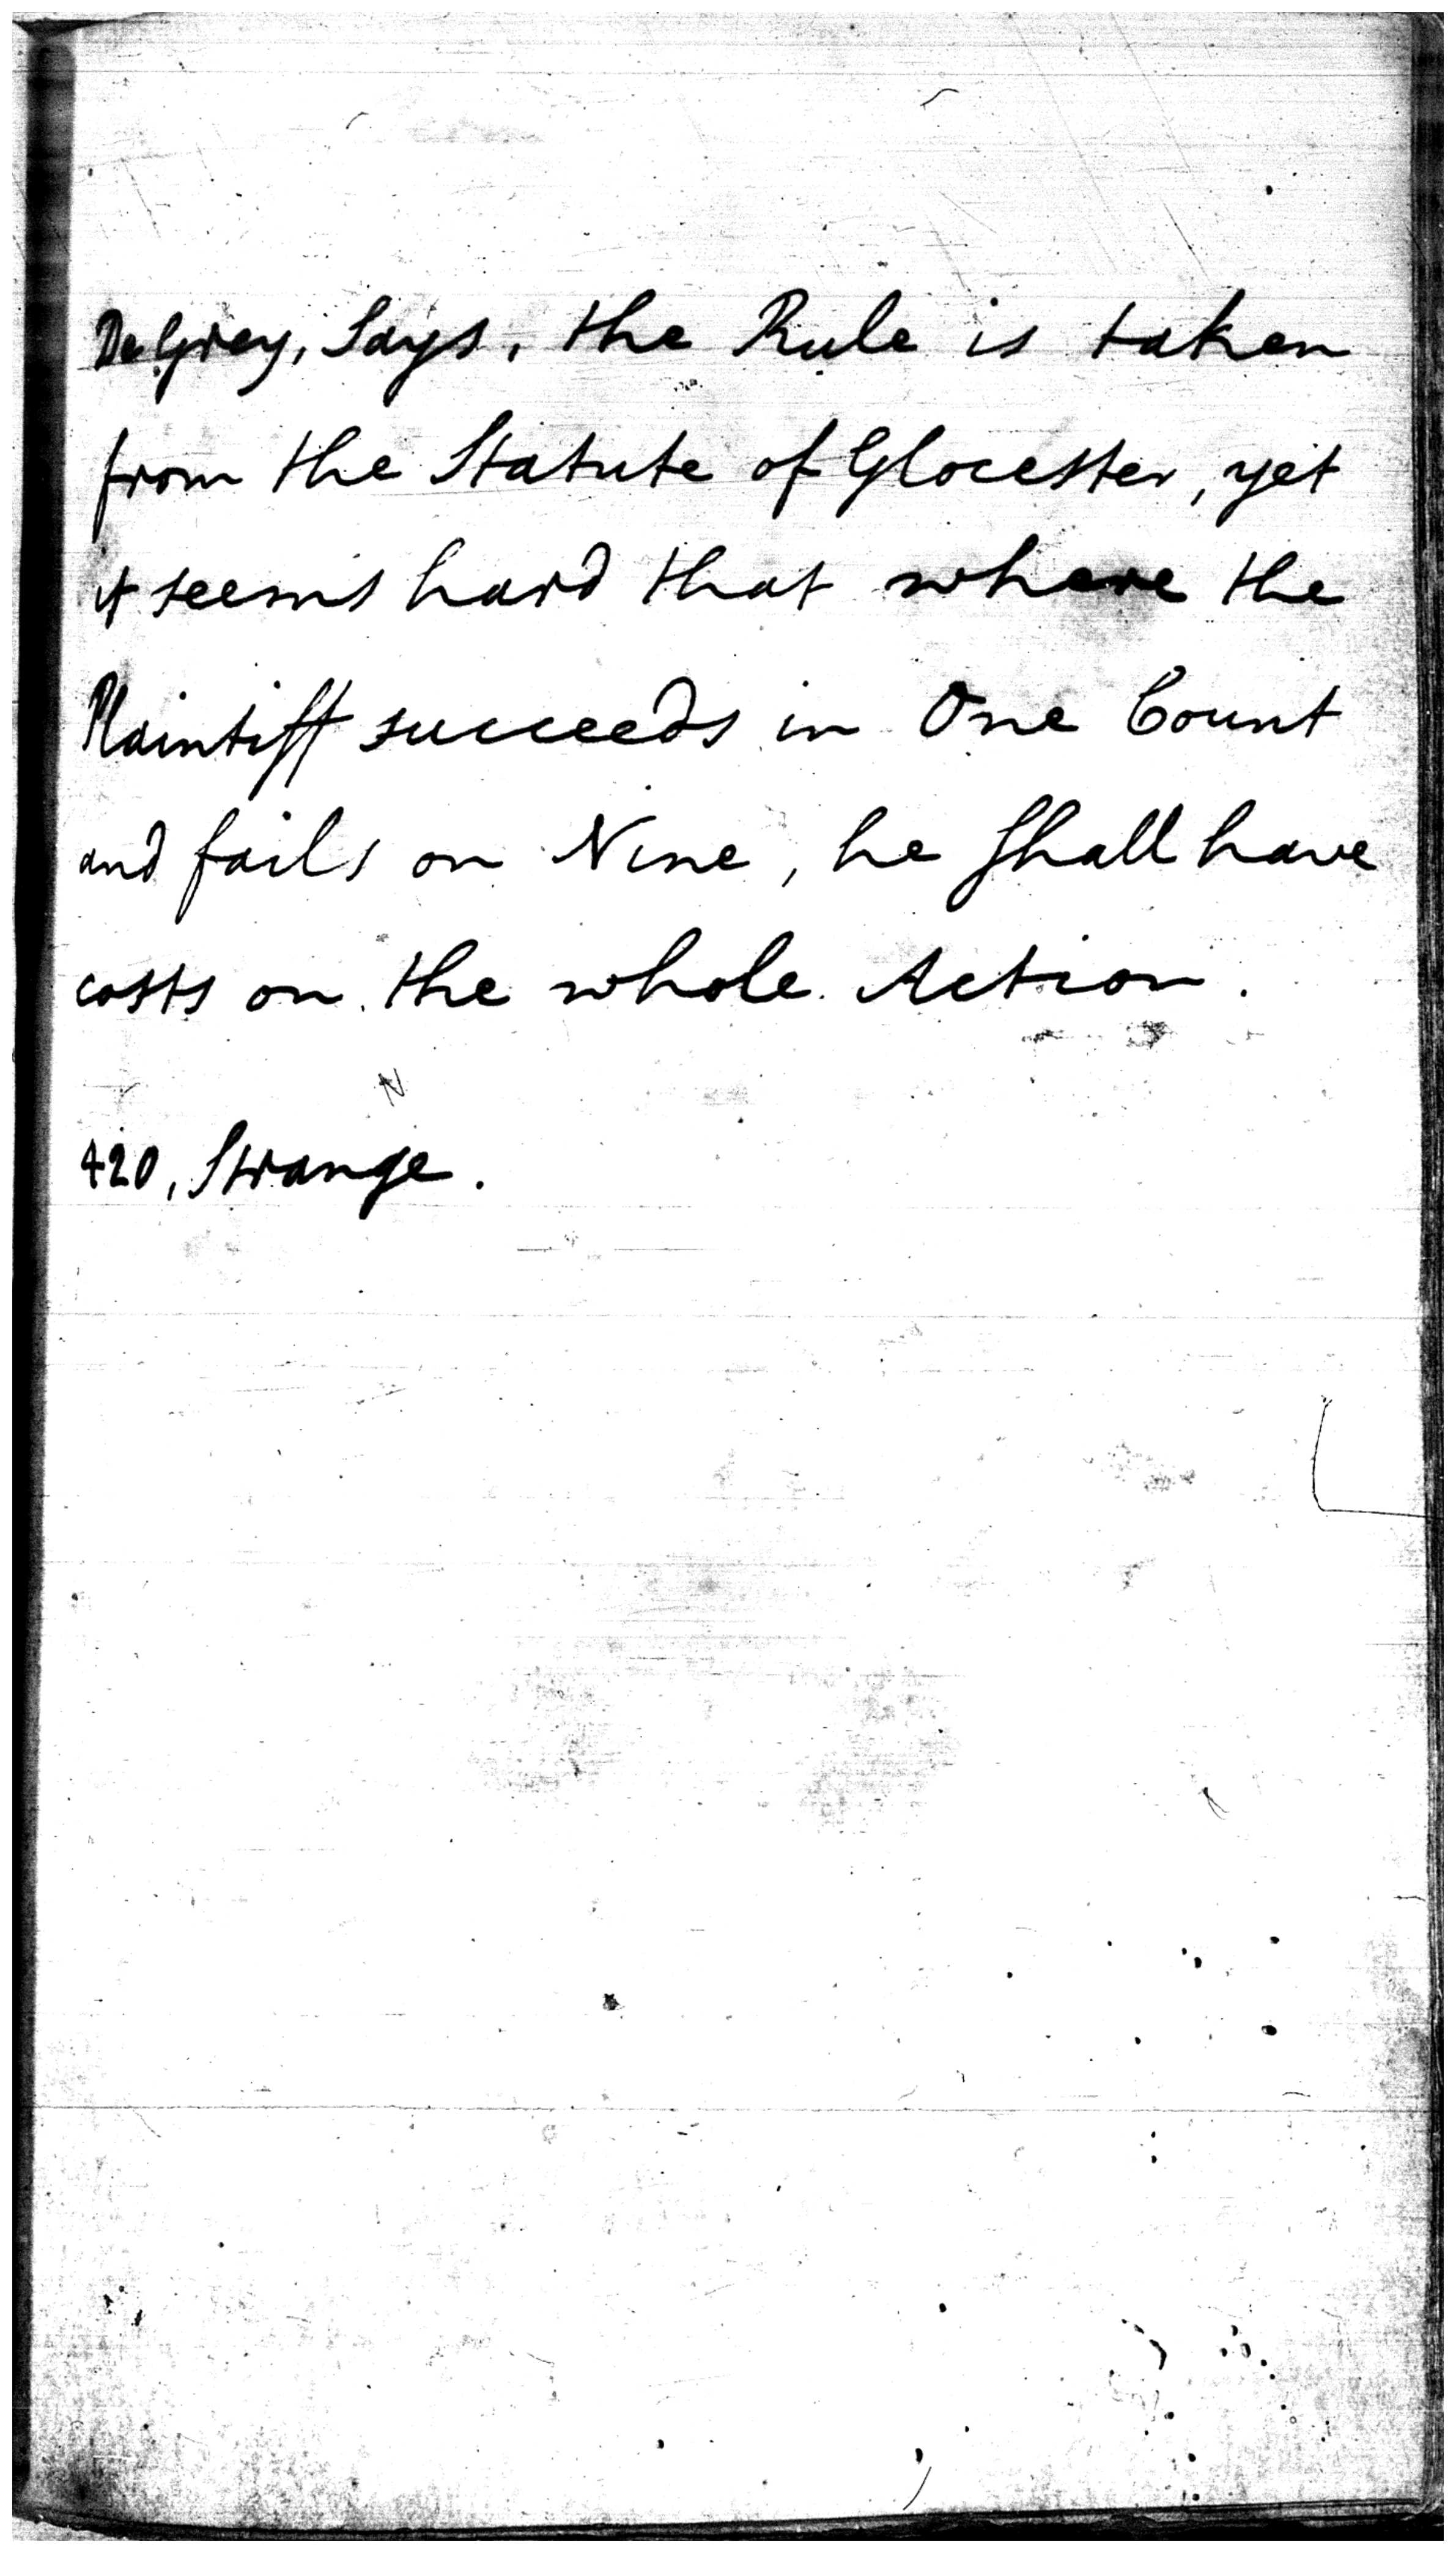 DeGrey, Says, the Rule is taken
from the Statute of Glocester, yet
it seems hard that where the
Plaintiff succeeds in One Count
and fails on Nine, he shall have
costs on the whole Action.
420, Strange.